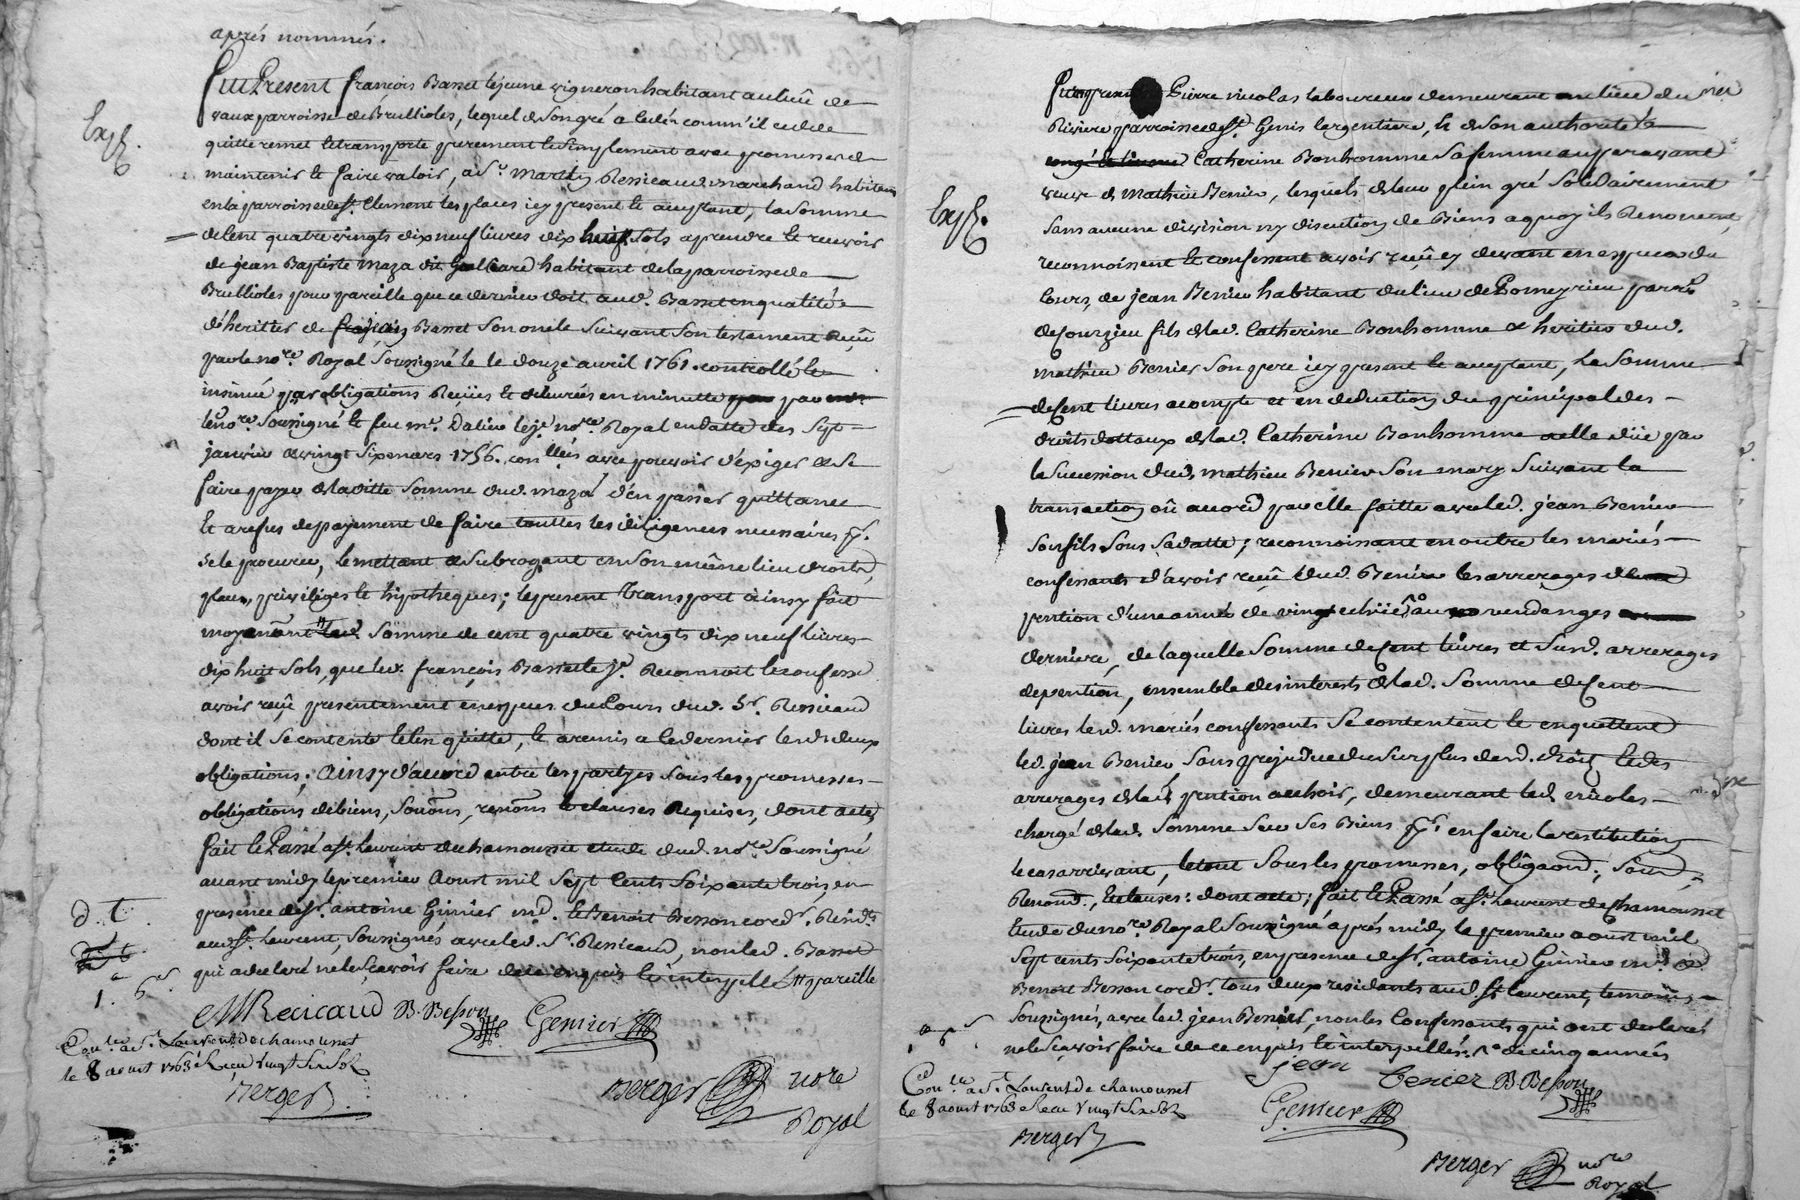 aprés nommés.
Fut Present françois Basset le jeune vigneron habitant au lieû de
vaux parroisse de Brullioles, lequel de son gré a cedé comm'il cede
quitte remet et transporte purement et simplement avec promesse de
maintenir et faire valoir, a Sr. Martin Ressicaud marchand habitant
en la parroisse de St. Clement les places icy present et acceptant, la somme
de Cent quatre vingts dix neuf livres dix huit sols a prendre et recevoir
de jean Baptiste maza dit habitant de la parroisse de
Brullioles pour pareille que ce dernier doit aud. Basset en qualité
d'héritier de françois Basset son oncle suivant son testament reçû
par le nore. Royal soussigné le douze avril 1761. controllé et
insinué par obligations Reçües et delivrées en minutte par
le nore. soussigné et feu me. Dalieu le je. nore. Royal en datte des sept
janvier et vingt six mars 1756. conllées avec pouvoir d'exiger et se
faire payer de laditte somme dud. maza d'en passer quittance
et a refus de payement de faire touttes les diligences necessaires
le procurer, le mettant et subrogeant en son même lieu droits,
place, privileges et hipotheques; le present transport ainsy fait
moyenant lad. somme de cent quatre vingts dix neuf livres
dix huit sols, que led. françois Basset le je. Reconnoit et confesse
avoir reçû presentement en especes du Cours dud. Sr. Ressicaud
dont il se contente et l'en quitte, et a remis a ce dernier lesd. deux
obligations; ainsy d'accord entre les partyes sous les promesses
obligations de biens, soûons, renons. et clauses Requises, dont acte
fait et Passé a St. Laurent de chamousset etude dud. nore. soussigné
avant midy le premier aoust mil sept cents soixante trois en
presence de Sr. antoine Genier md. et Benoit Besson cordr. Residts.
aud. St. Laurent, soussignés avec led. Sr. Ressicaud, non led. Basset
qui a declaré ne le sçavoir faire de ce enquis et interpellé pareille
MRecicaud B. Besson Genier
Conlé. a St. Laurent de chamousset
le 8 aoust 1763 Reçu vingt six sols
Berger
Berger nore
Royal
Exp.
d. t.
Pierre nicolas laboureur demeurant au lieu du
Riviere parroisse de St. Genis l'argentiere, et de son authorité
Catherine Bonhomme sa femme auparavant
veuve de Mathieu Benier, lesquels de leur plein gré solidairement
sans aucune division ny discution de Biens a quoy ils Renoncent,
reconnoissent et confessent avoir reçû cy devant en especes du
Cours, de jean Benier habitant du lieu de Pomeyrieu parrse.
de courzieu fils de lad. Catherine Bonhomme et heritier dud.
mathieu Benier son pere icy present et acceptant, la somme
de Cent livres acompte et en deduction du principal des
droits dottaux de lad. Catherine Bonhomme a elle dûe par
la succession dud. mathieu Benier son mary suivant la
transaction oû accord par elle faitte avec led. jean Benier
son fils sous sa datte; reconnoissant en outre les mariés
confessants d'avoir reçû dud. Benier les arrerages de
pention d'une année de vendanges
derniere, de laquelle somme de Cent livres et susd. arrerages
de pention, ensemble des interests de lad. somme de Cent
livres lesd. mariés confessants se contentent et en quittent
led. jean Benier sans prejudice du surplus desd. droits et des
arrerages de lad. pention a echoir, demeurant led. nicolas
chargé de lad. somme sur ses Biens pr. en faire la restitution
le cas arrivant, le tout sous les promesses, obligaons.; soûons.,
Renonons., et clauses: dont acte; fait et Passé a St. Laurent de Chamousset
etude du nore. Royal soussigné aprés midy le premier aoust mil
sept cents soixante trois, en presence de Sr. antoine Genier md. et
Benoit Besson cordr. tous deux residants aud. St. Laurent, temoins
soussignés, avec led. jean Benier, non les Confessants qui ont declaré
ne le sçavoir faire de ce enquis et interpellés. de cinq années
jean benier B. Besson
Conlé. a St. Laurent de chamousset
le 8 aoust 1763 Reçu vingt six sols
Genier
Berger
Berger nore
Royal
Exp.